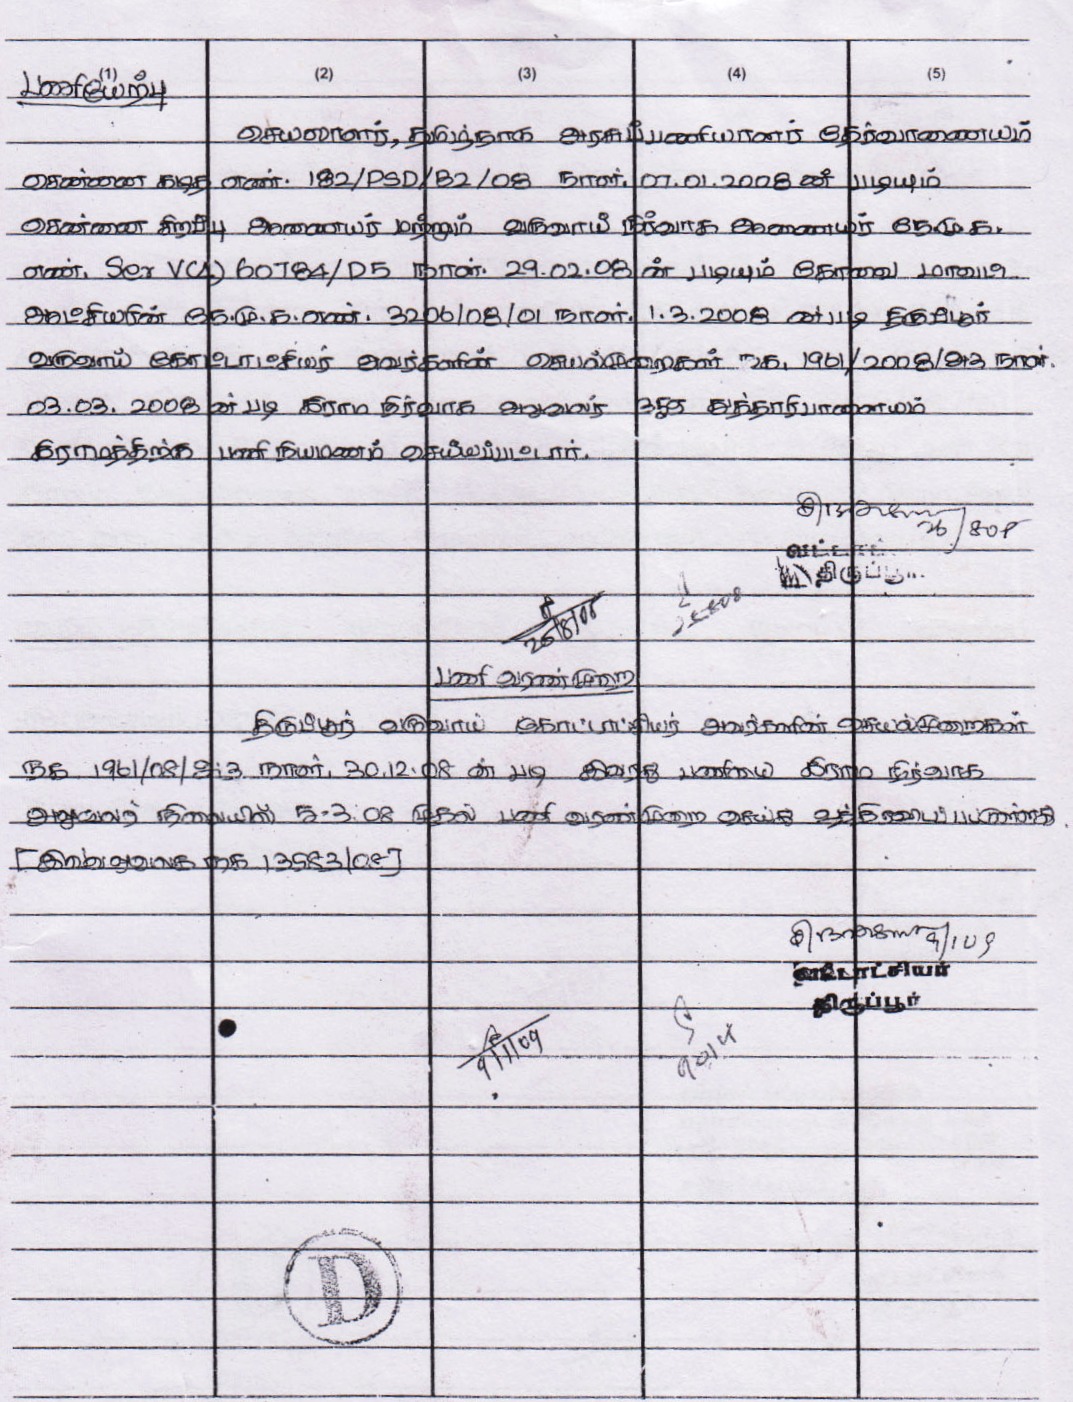 (1) (2) (3) (4) (5)
பணியேற்பு
செயலாளர், தமிழ்நாடு அரசுப்பணியாளர் தேர்வாணையம்
சென்னை கடித எண். 182/PSD/B2/08 நாள். 07.01.2008 ன் படியும்
சென்னை சிறப்பு ஆணையர் மற்றும் வருவாய் நிர்வாக ஆணையர் செ.மு.க.
எண். Ser V(A) 60784/D5 நாள். 29.02.08 ன் படியும் கோவை மாவட்ட
ஆட்சியரின் செ.மு.க.எண். 3206/08/01 நாள். 1.3.2008 ன்படி திருப்பூர்
வருவாய் கோட்டாட்சியர் அவர்களின் செயல்முறைகள் நக. 1961/2008/அ3 நாள்.
03.03. 2008 ன் படி கிராம நிர்வாக அலுவலர்
கிராமத்திற்கு பணி நியமணம் செய்யப்பட்டார்.
திருப்பூ
26/8/08
பணி வரண்முறை
திருப்பூர் வருவாய் கோட்டாட்சியர் அவர்களின் செயல்முறைகள்
நக 1961/08/அ3 நாள். 30.12.08 ன் படி இவரது பணியை கிராம நிர்வாக
அலுவலர் நிலையில் 5-3.08 முதல் பணி வரண்முறை செய்து
[இவ்வலுவலக நக 13583/08]
வட்டாட்சியர்
திருப்பூர்
9/1/09
D